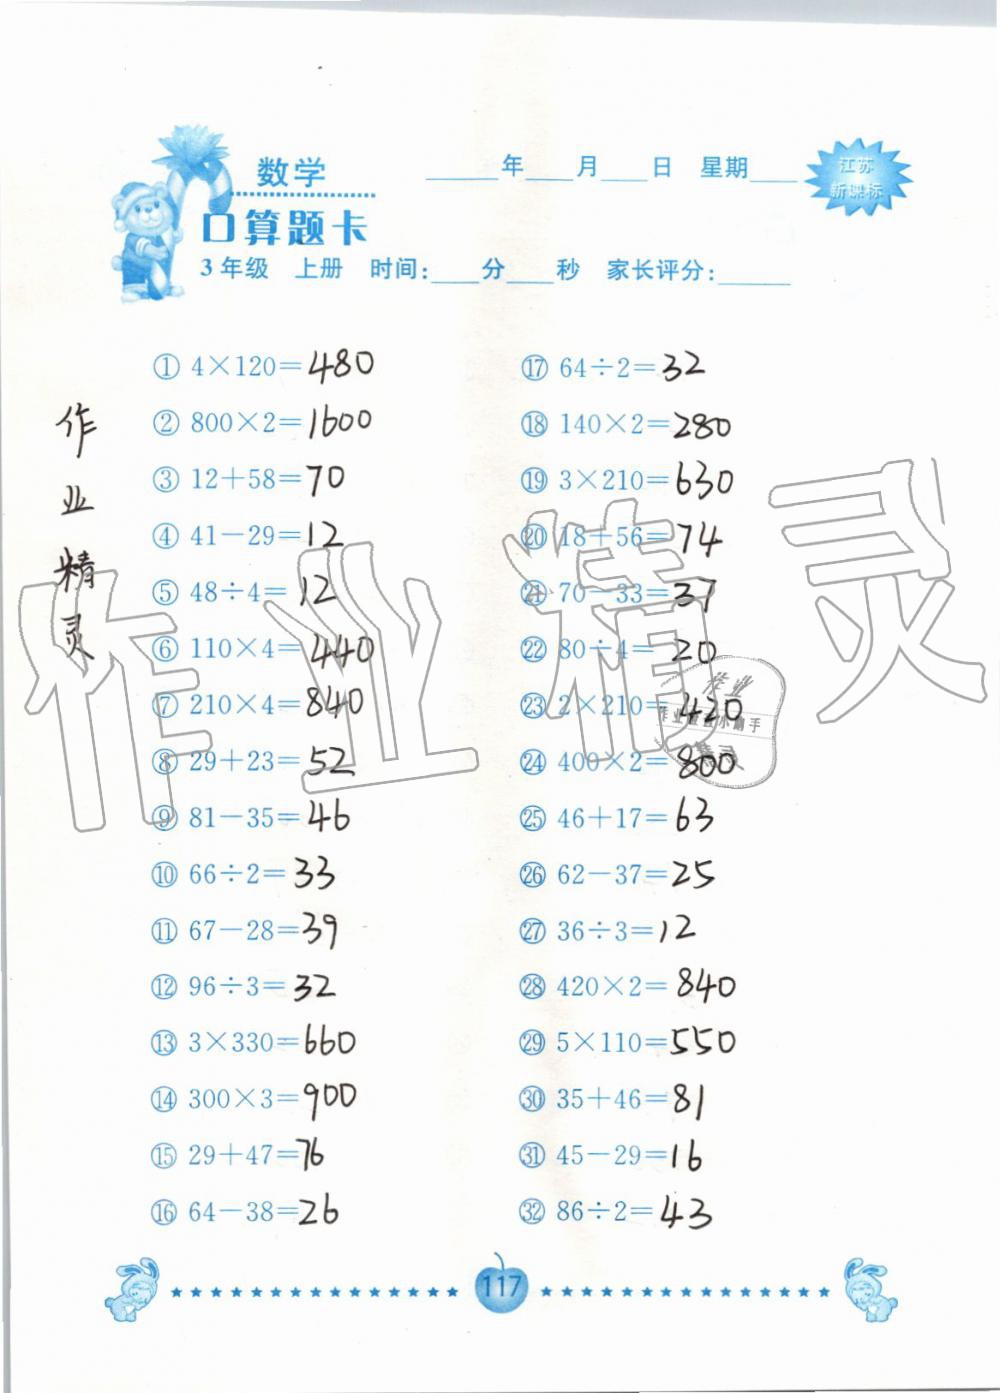 数学
____年____月____日 星期____
江苏
新课标
口算题卡
3年级 上册 时间:____分____秒 家长评分:____
① 4×120=480
② 800×2=1600
③ 12+58=70
④ 41-29=12
⑤ 48÷4=12
⑥ 110×4=440
⑦ 210×4=840
⑧ 29+23=52
⑨ 81-35=46
⑩ 66÷2=33
⑪ 67-28=39
⑫ 96÷3=32
⑬ 3×330=660
⑭ 300×3=900
⑮ 29+47=76
⑯ 64-38=26
⑰ 64÷2=32
⑱ 140×2=280
⑲ 3×210=630
⑳ 18+56=74
㉑ 70-33=37
㉒ 80÷4=20
㉓ 2×210=420
㉔ 400×2=800
㉕ 46+17=63
㉖ 62-37=25
㉗ 36÷3=12
㉘ 420×2=840
㉙ 5×110=550
㉚ 35+46=81
㉛ 45-29=16
㉜ 86÷2=43
作业精灵
作业精灵
作业
精灵
117